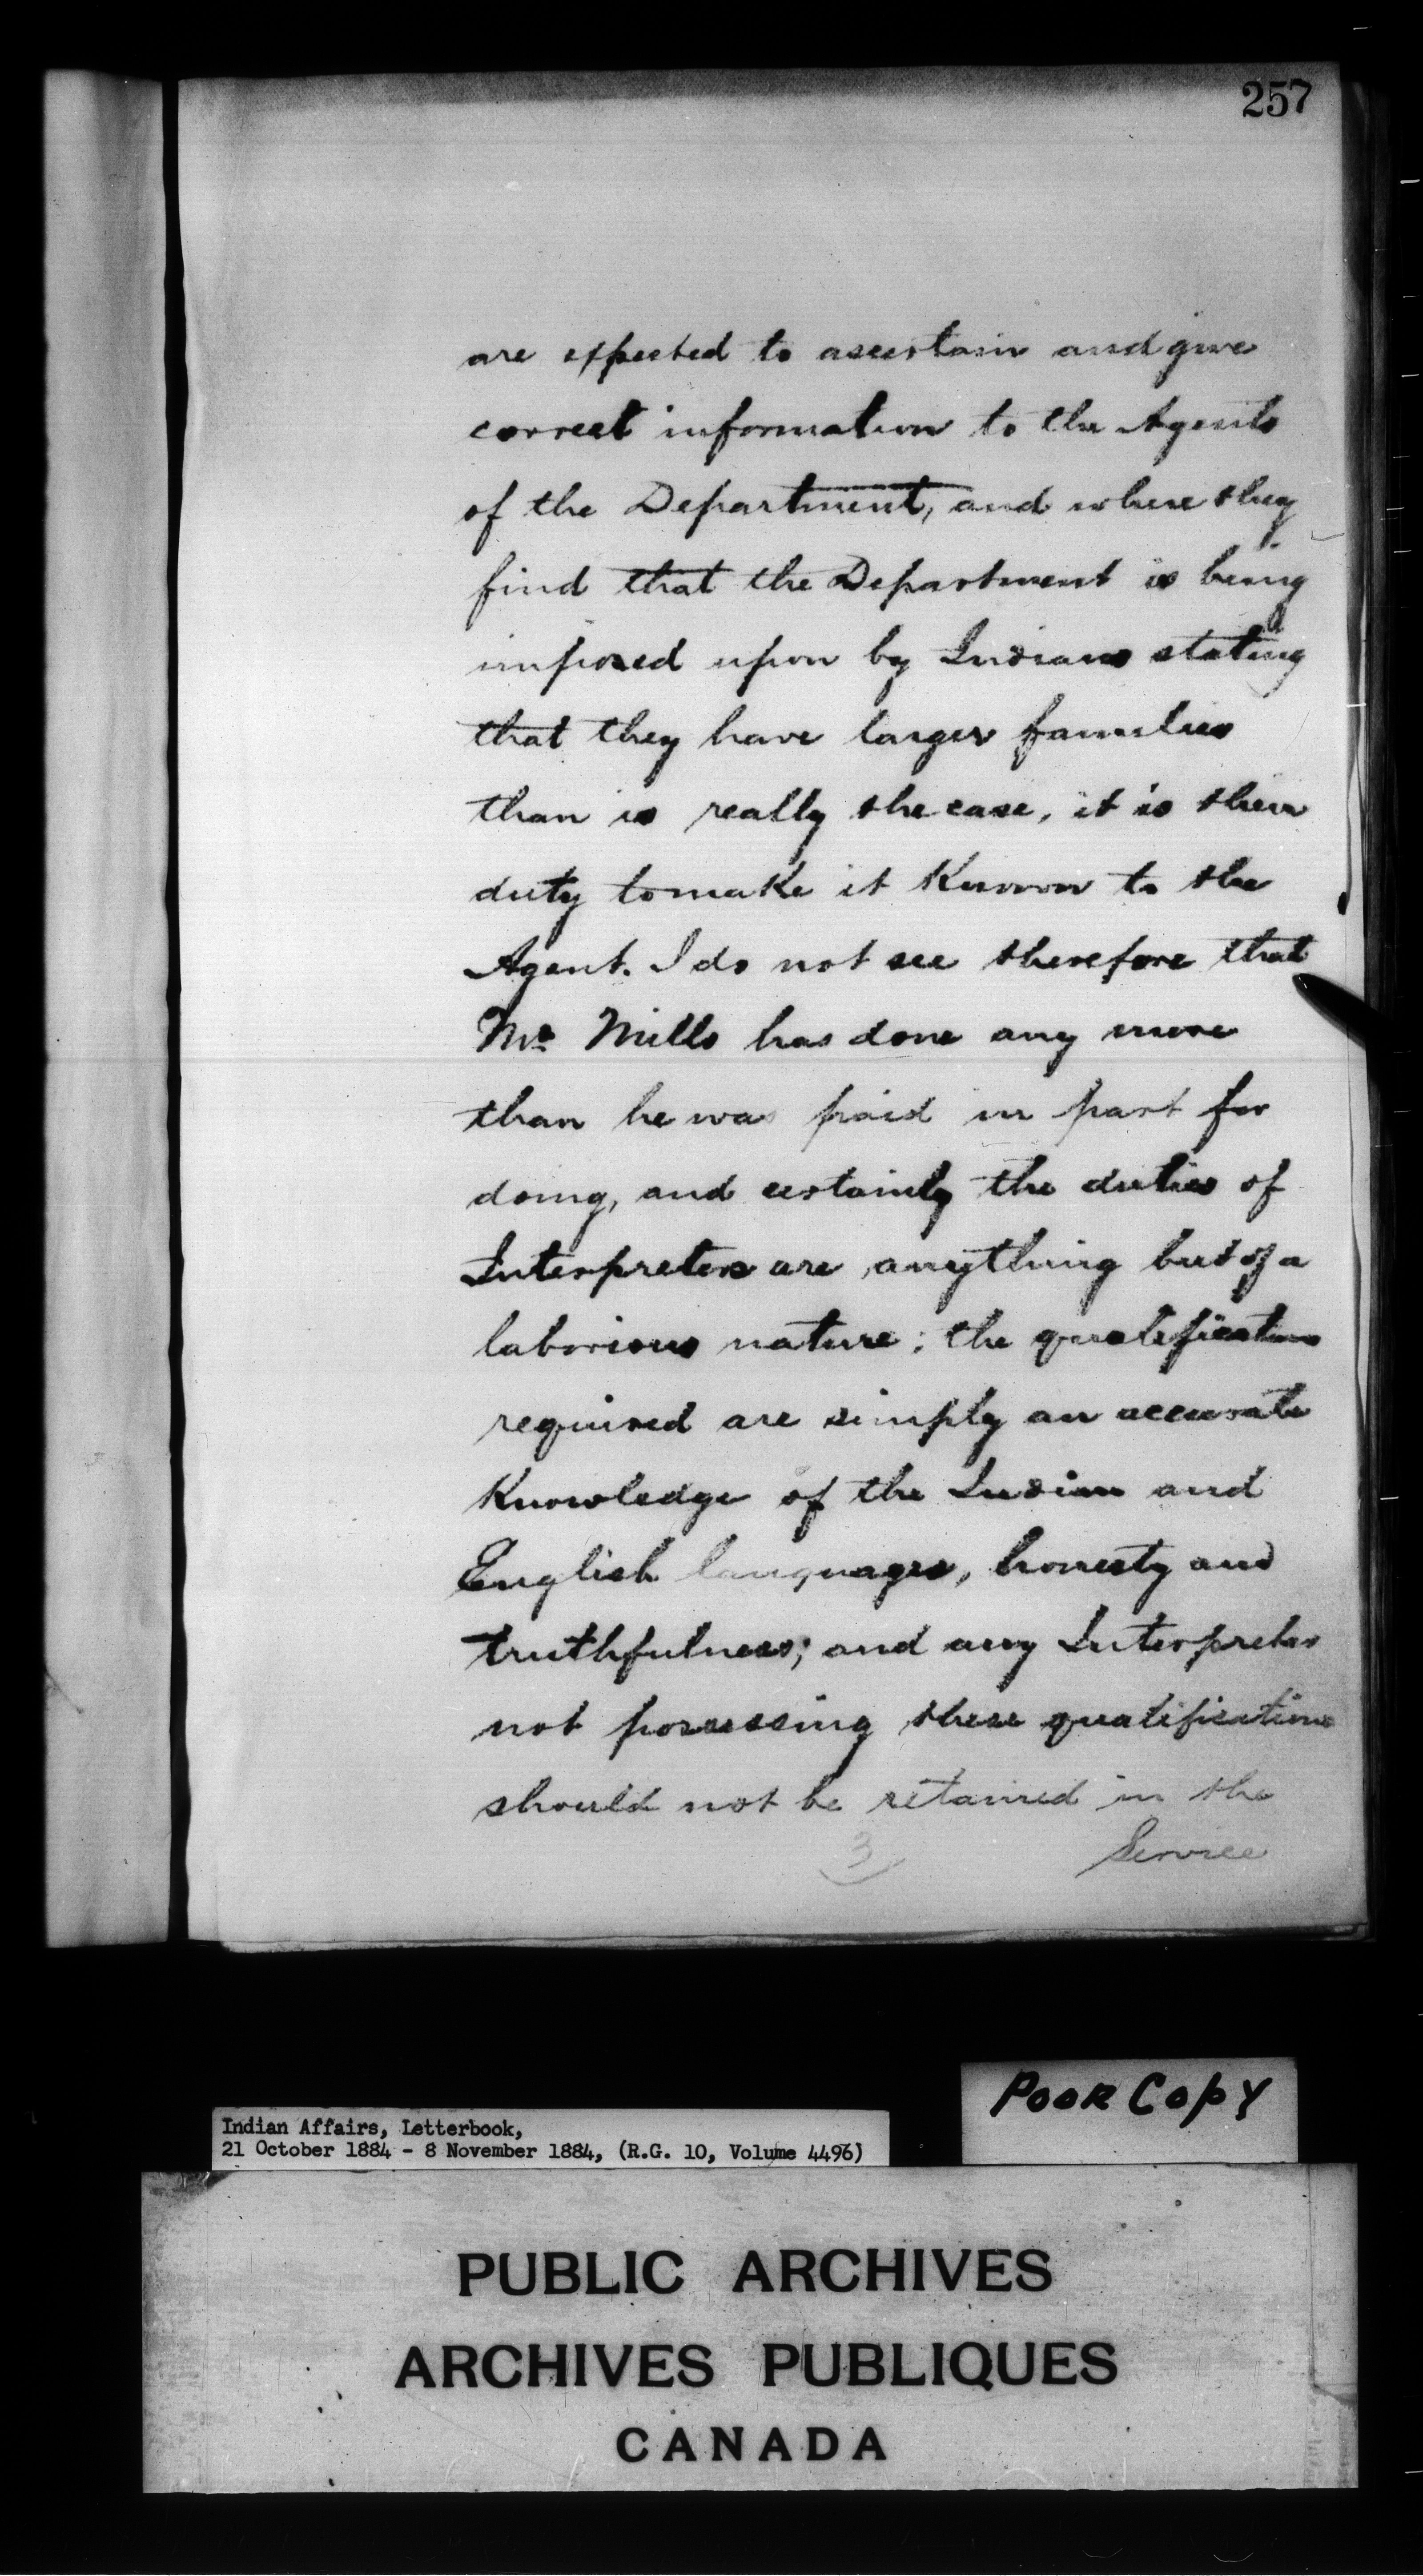 257
are expected to ascertain and give
correct information to the Agents
of the Department, and where they
find that the Department is being
imposed upon by Indians stating
that they have larger families
than is really the case, it is their
duty to make it Known to the
Agent. I do not see therefore that
Mr Mills has done any more
than he was paid in part for
doing, and certainly the duties of
Interpreters are anything but of a
laborious nature; the qualifications
required are simply an accurate
Knowledge of the Indian and
English languages, honesty and
truthfulness; and any Interpreter
not possessing these qualifications
should not be retained in the
3 Service
Poor Copy
Indian Affairs, Letterbook,
21 October 1884 - 8 November 1884, (R.G. 10, Volume 4496)
PUBLIC ARCHIVES
ARCHIVES PUBLIQUES
CANADA